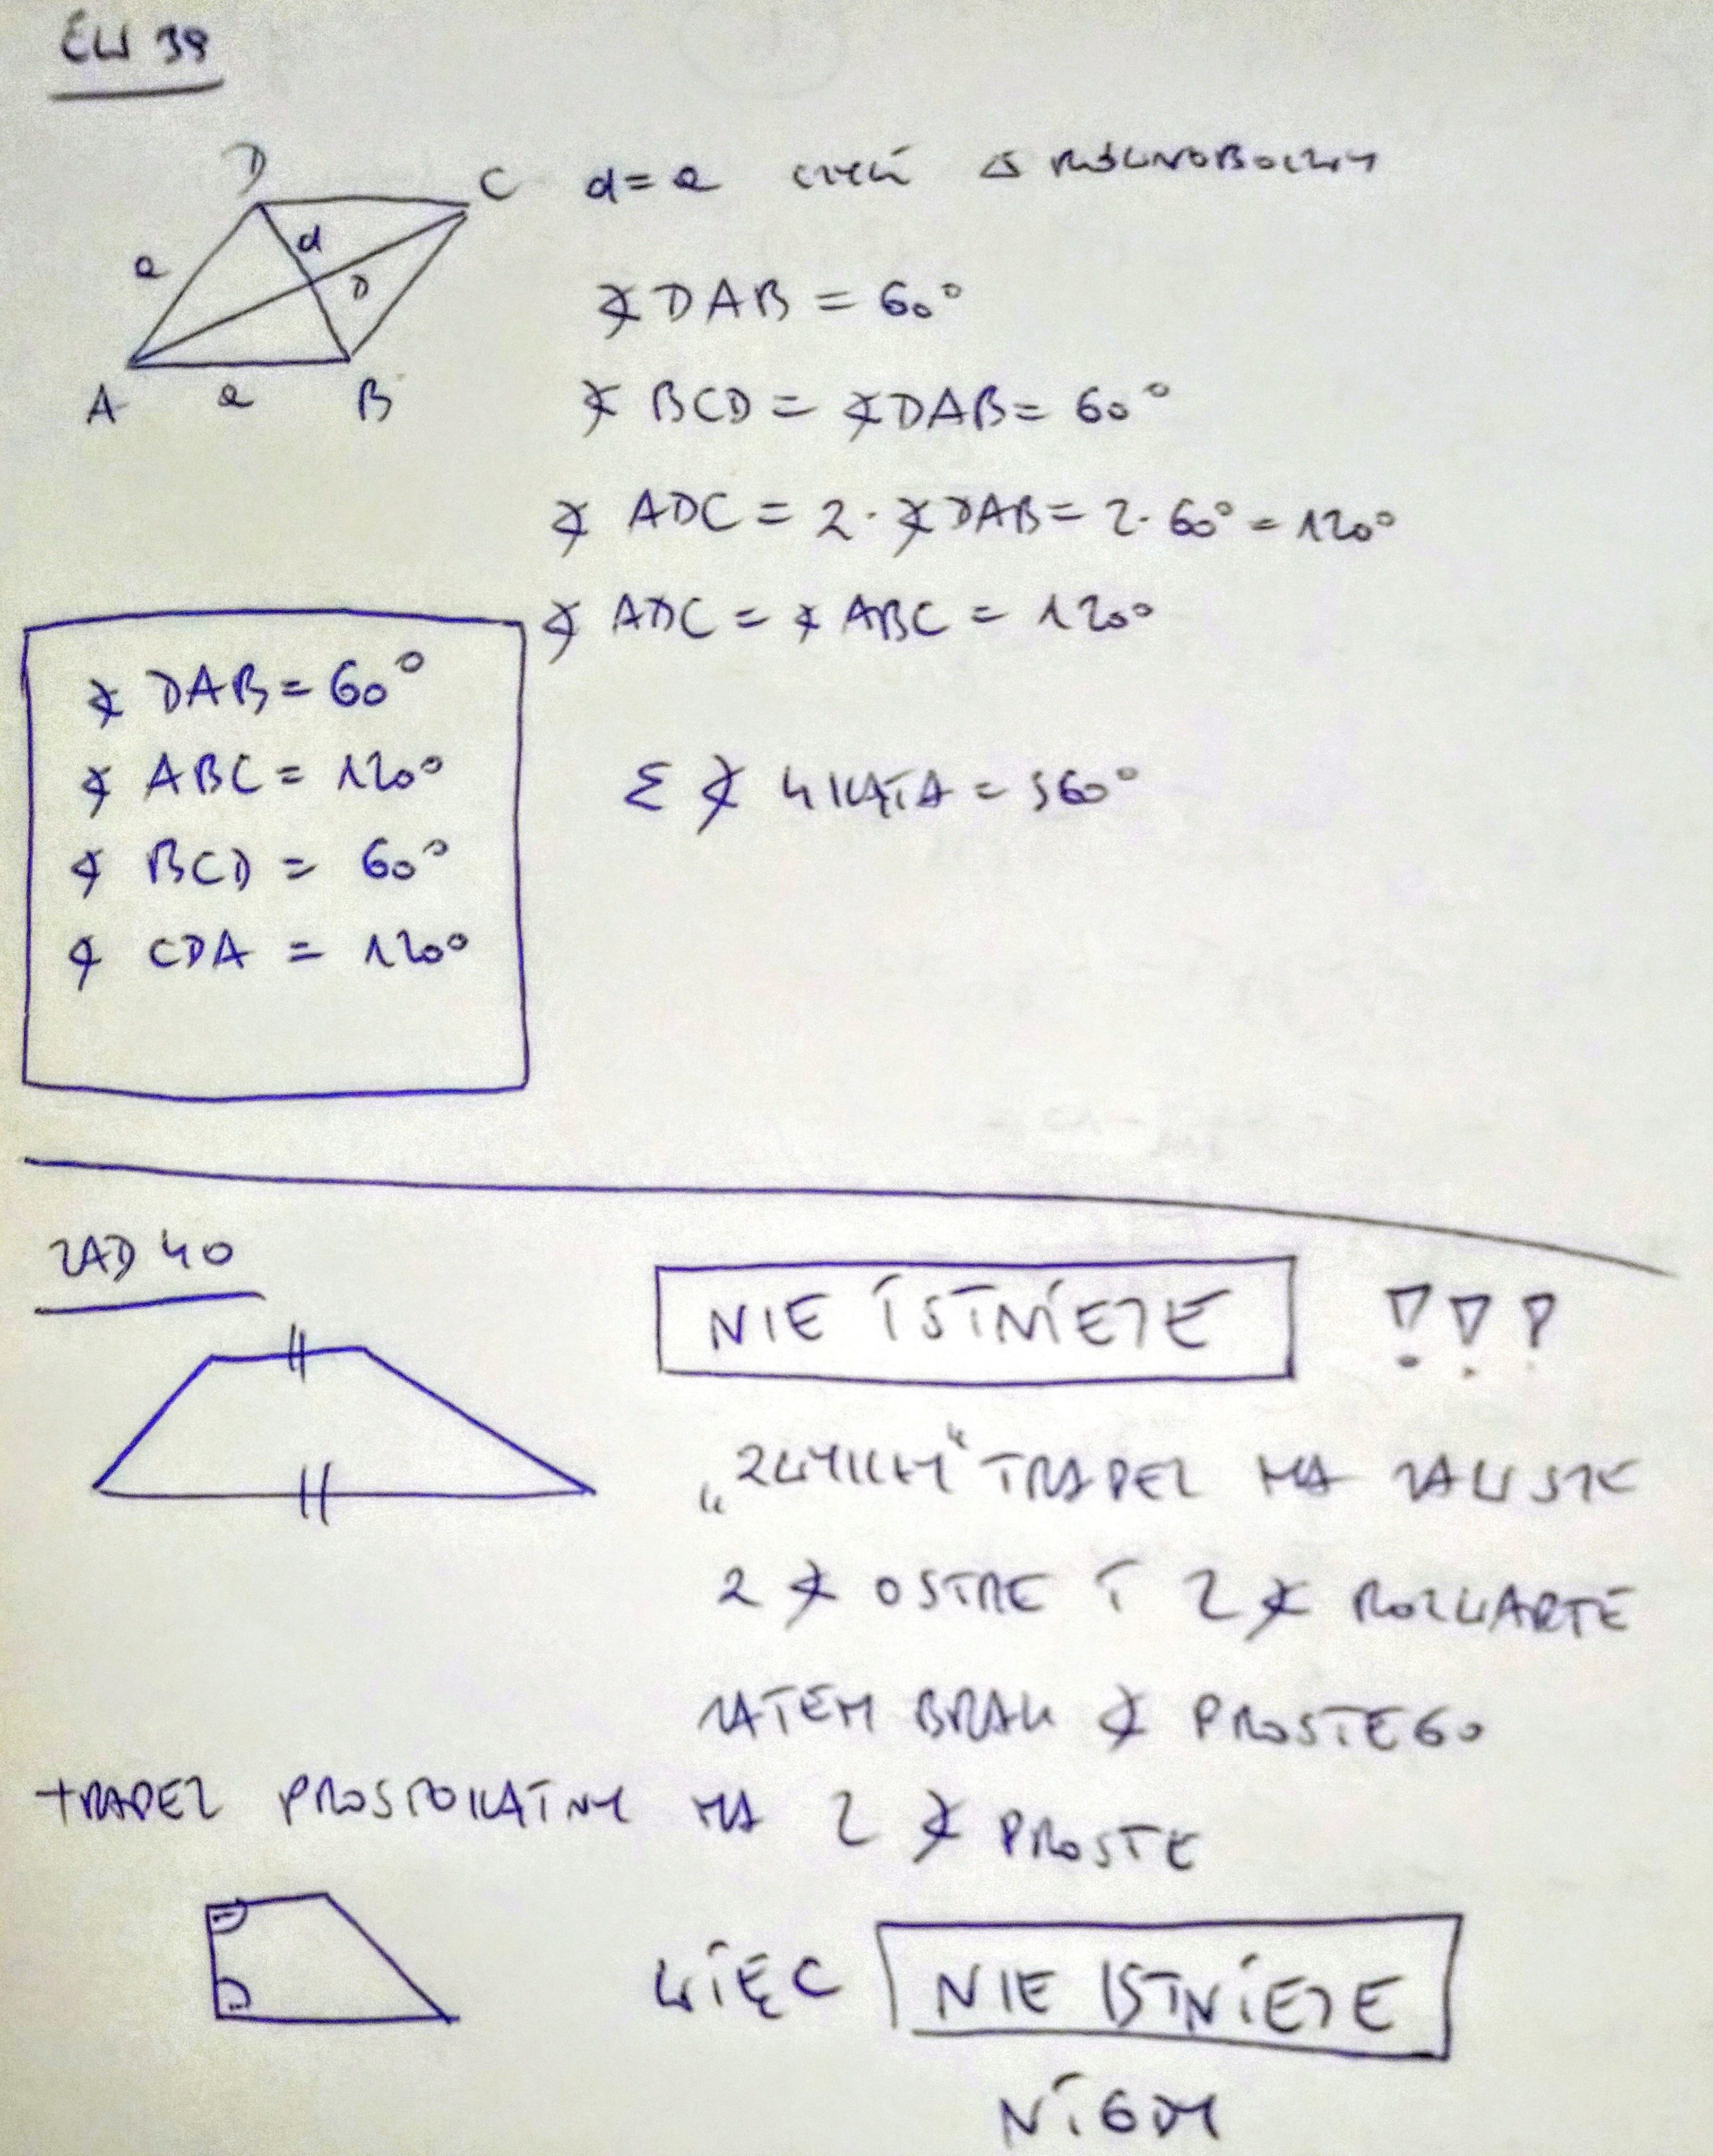 ĆW 39
D
C d=a czyli Δ RÓWNOBOCZNY
a
d
D
A a B
∢ DAB = 60°
∢ BCD = ∢DAB = 60°
∢ ADC = 2·∢DAB = 2·60° = 120°
∢ ADC = ∢ ABC = 120°
∢ DAB = 60°
∢ ABC = 120°
∢ BCD = 60°
∢ CDA = 120°
Σ ∢ 4KĄTA = 360°
ZAD 40
NIE ISTNIEJE !!!
„ZWYKŁY“ TRAPEZ MA ZAWSZE
2 ∢ OSTRE I 2 ∢ ROZWARTE
ZATEM BRAK ∢ PROSTEGO
TRAPEZ PROSTOKĄTNY MA 2 ∢ PROSTE
WIĘC NIE ISTNIEJE
NIGDY